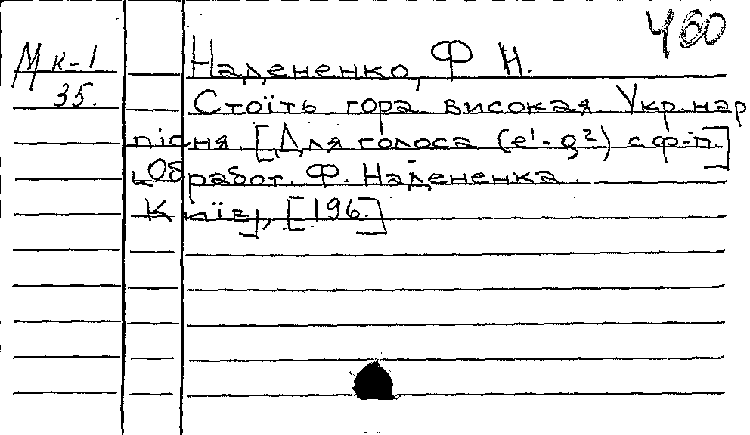 460
Мк-1
35.
Надененко, Ф Н.
Стоїть гора високая Укр. нар
пісня. [Для голоса (e¹-g²) с ф-п.]
Обработ. Ф. Надененка
Київ, [196.]